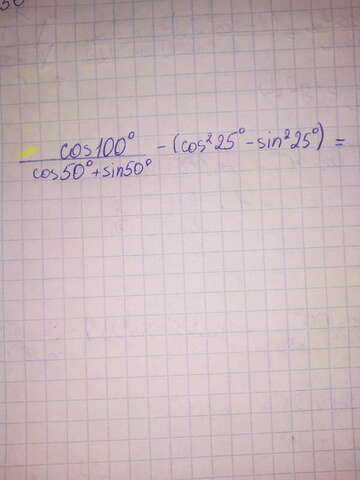 cos100° / cos50°+sin50° - (cos²25° - sin²25°) =